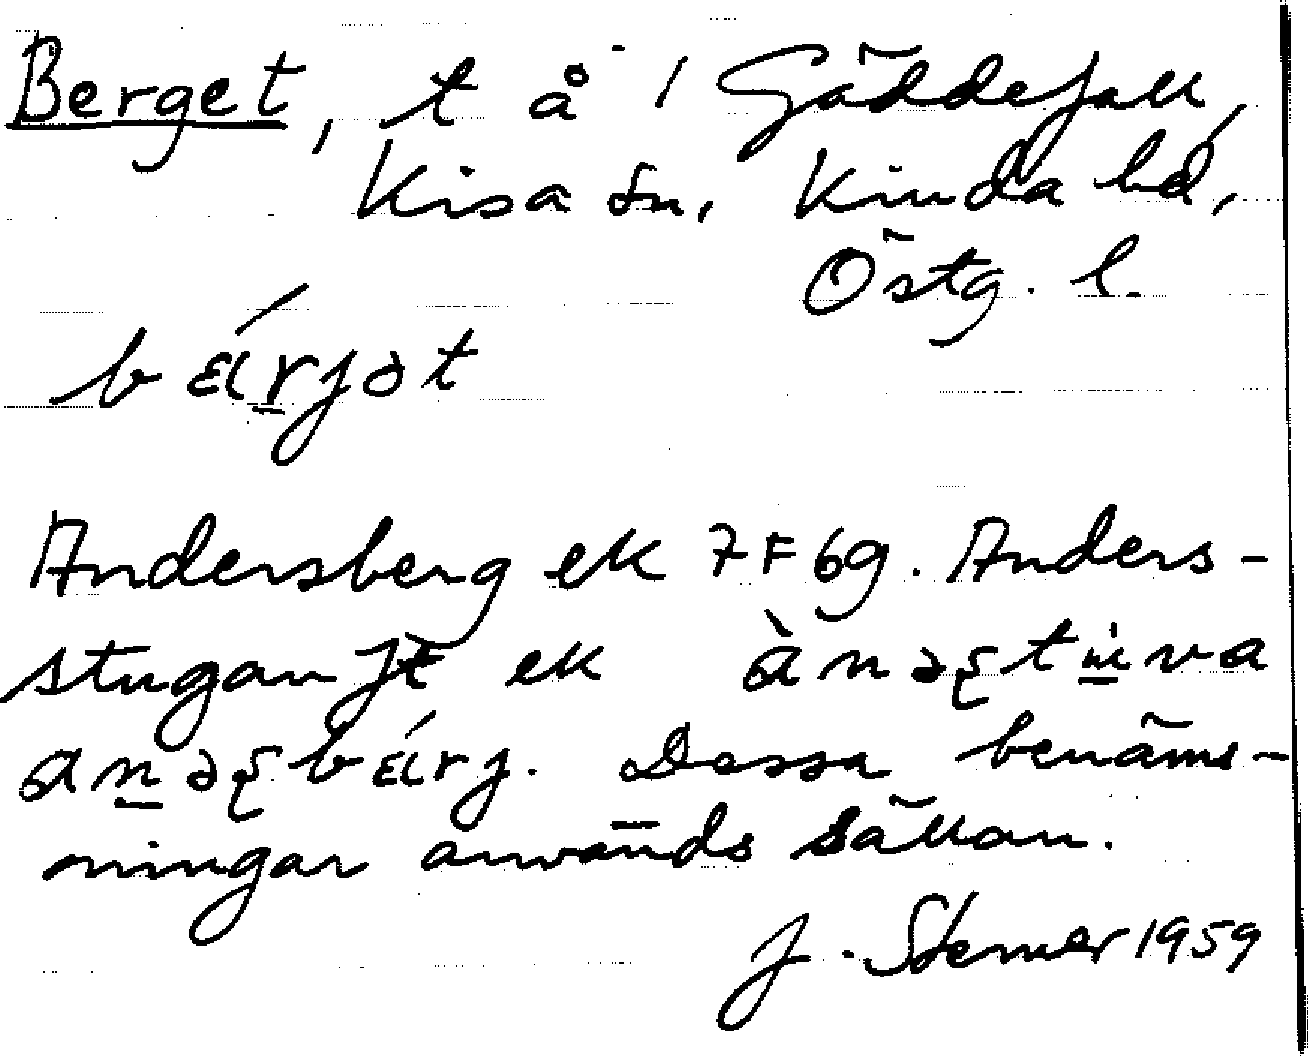 Berget, t å 1 Gäddefall,
Kisa sn, Kinda hd,
Östg. l.
bɛárjət
Andersberg ek 7F6g. Anders-
stugan jt ek ànəʂtùva
anəʂbɛárj. Dessa benäm-
ningar används sällan.
J. Sterner 1959